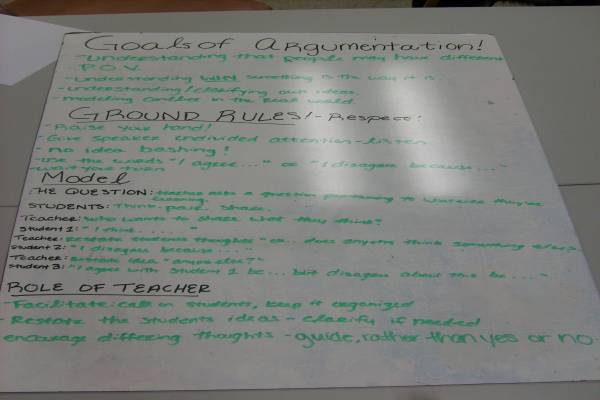 Goals of Argumentation!
- understanding that people may have different
P.O.V.
- understanding WHY something is the way it is.
- understanding/clarifying own ideas.
- modeling conflict in the real world
GROUND RULES! - Respect!
- Raise your hand!
- Give speaker undivided attention - listen
- no idea bashing!
- use the words "I agree..." or "I disagree because..."
- wait your turn
Model
THE QUESTION: teacher asks a question pertaining to whatever they're
learning.
STUDENTS: Think-pair-share.
Teacher: who wants to share what they think?
Student 1: "I think......."
Teacher: Restate students thoughts "ok.. does anyone think something else?
Student 2: "I disagree because...."
Teacher: Restate idea "anyone else?"
Student 3: "I agree with student 1 bc... but disagree about this bc...."
ROLE OF TEACHER
- Facilitate: call on students, keep it organized
- Restate the students ideas - clarify if needed
encourage differing thoughts - guide, rather than yes or no.